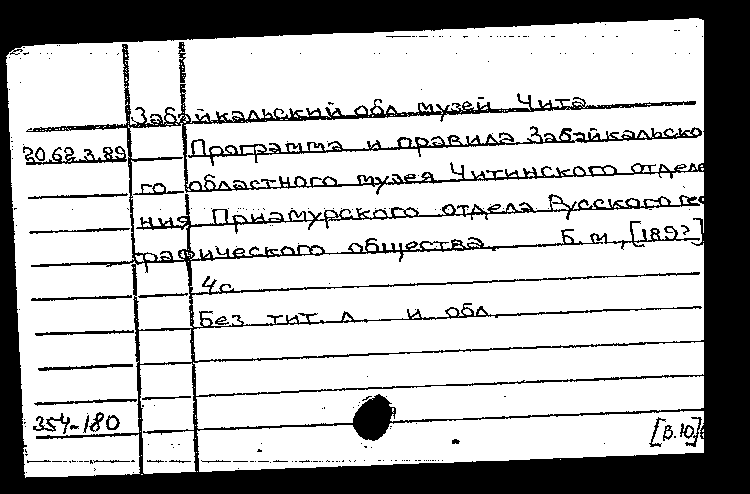 Забайкальский обл. музей Чита
20.62.3.89 Программа и правила Забайкальско
го областного музея Читинского отделе
ния Приамурского отдела Русского гео
графического общества. Б.м., [189?]
4с.
Без тит. л. и обл.
354-180
[В.Ю]